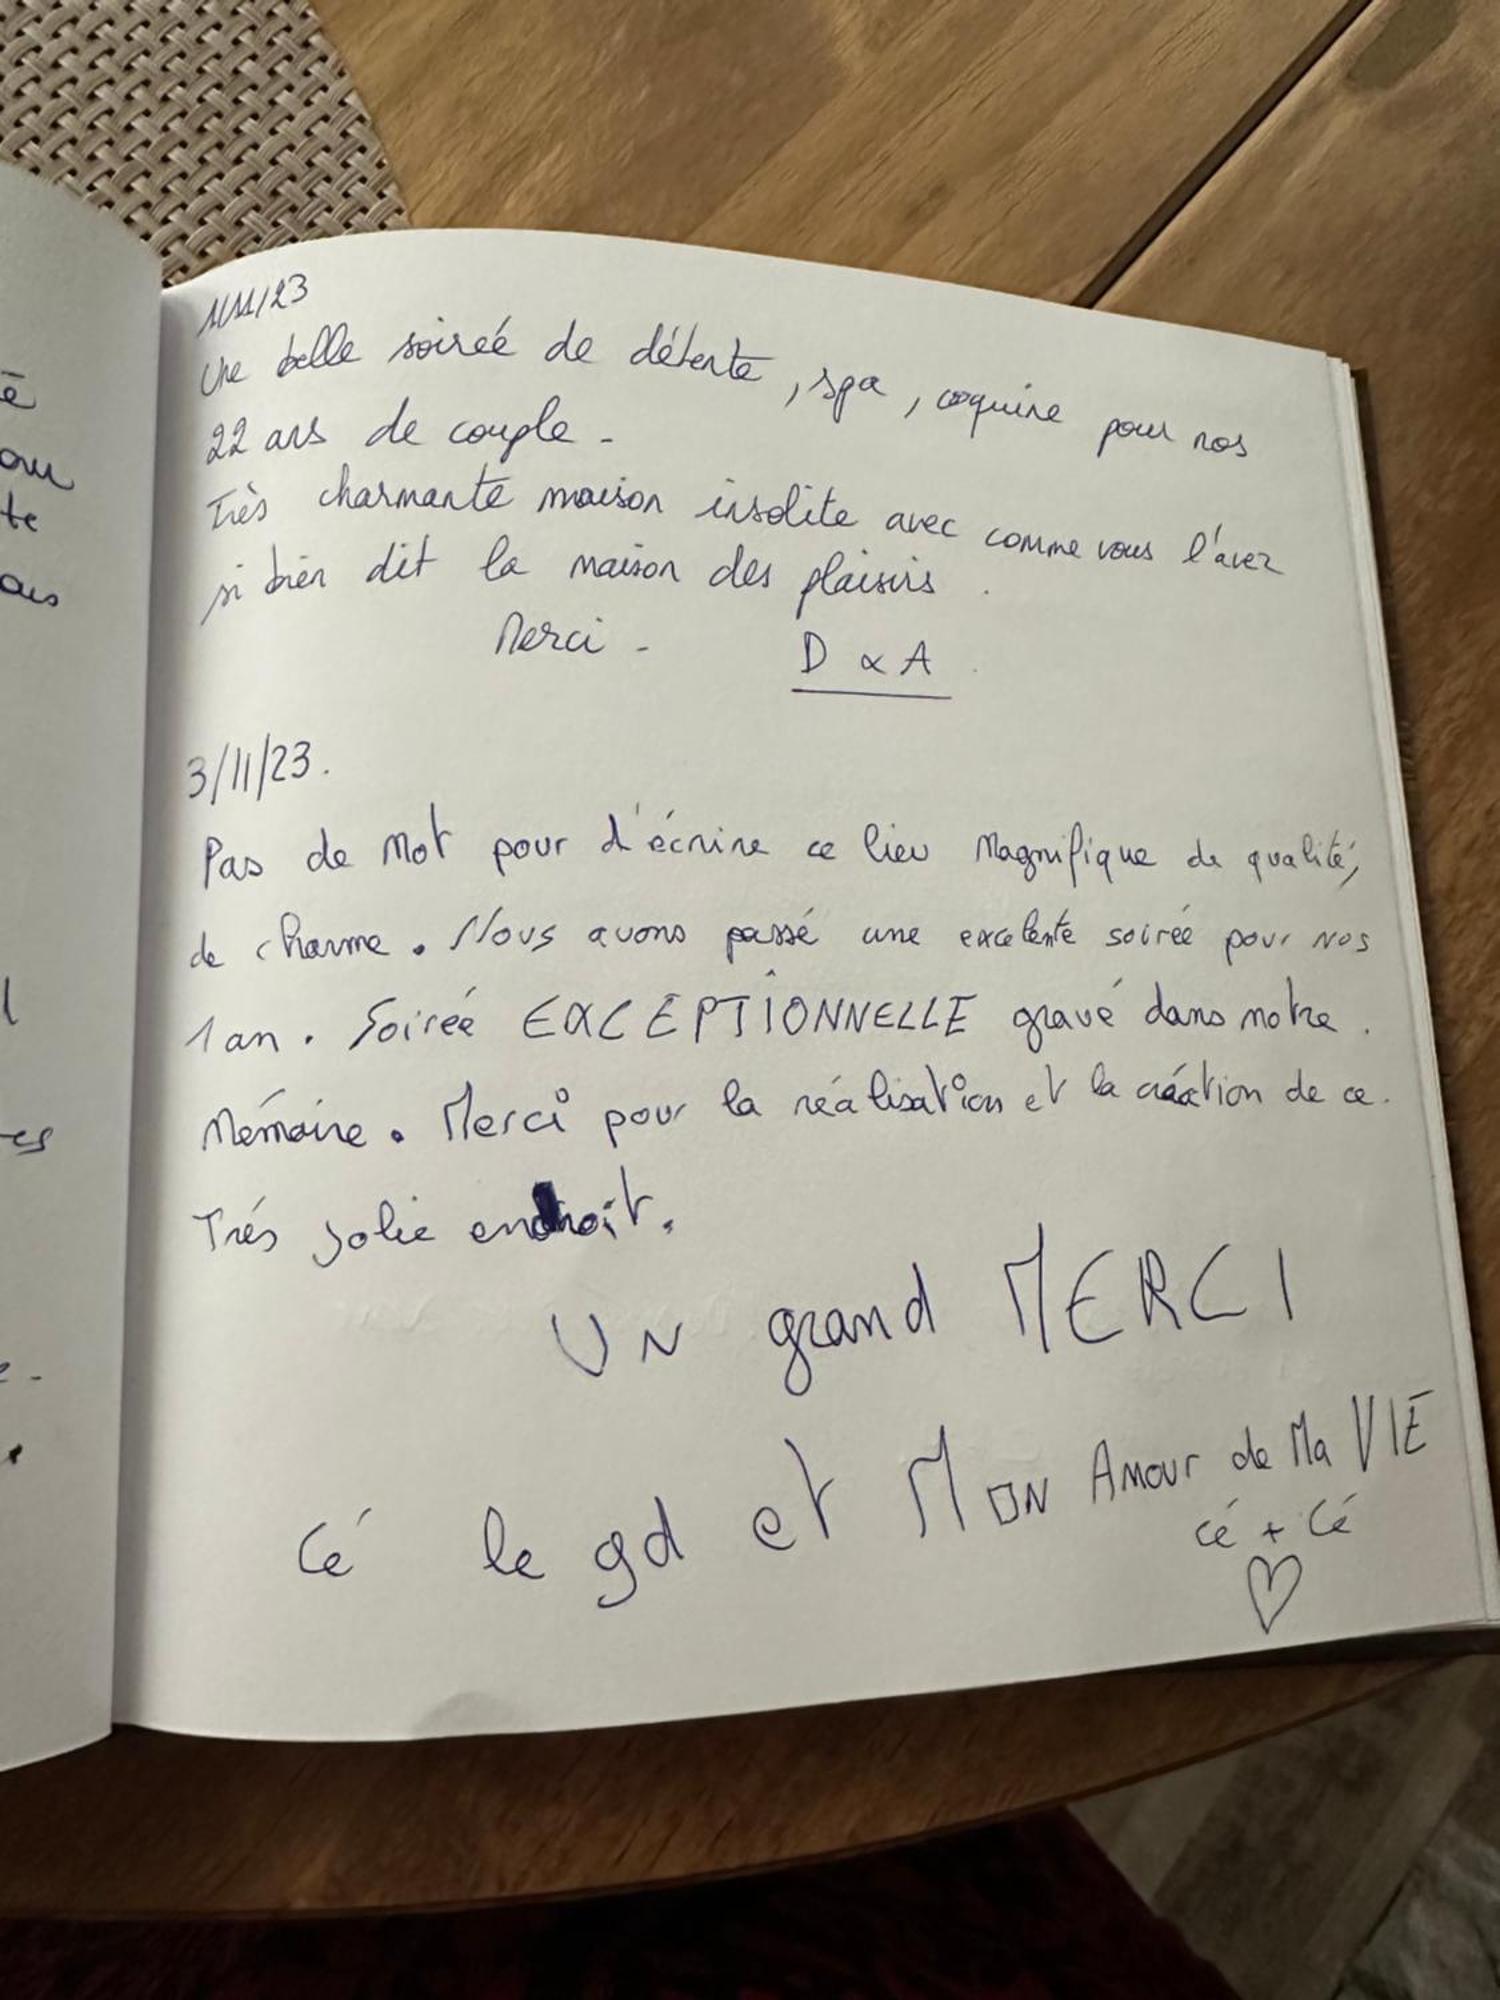 é
ou
te
ais
l
res
e.
1/11/23
Une belle soireé de détente, spa, coquine pour nos
22 ans de couple -
Très charmante maison insolite avec comme vous l'avez
si bien dit la maison des plaisirs.
Merci - D & A
3/11/23.
Pas de Mot pour d'écrire ce lieu Magnifique de qualité,
de charme. Nous avons passé une excelente soirée pour nos
1 an. Soireé EXCEPTIONNELLE gravé dans notre.
Mémoire. Merci pour la réalisation et la création de ce.
Trés jolie endroit.
UN grand MERCI
Cé le gd et MON Amour de Ma VIE
Cé + Cé